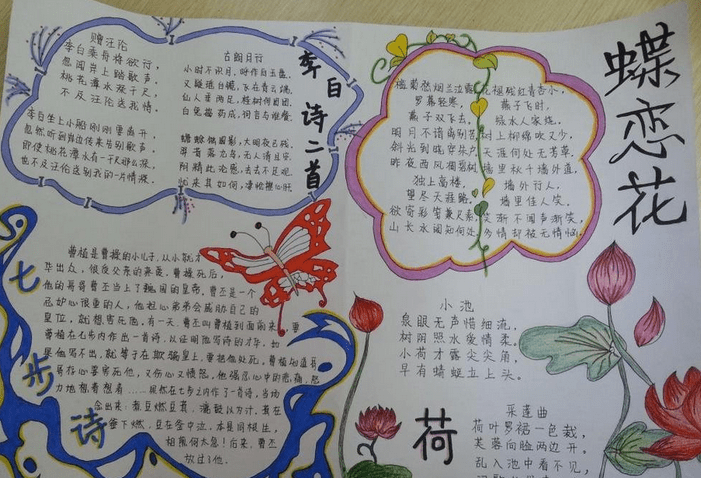 赠汪伦
李白乘舟将欲行，
忽闻岸上踏歌声。
桃花潭水深千尺，
不及汪伦送我情。
李白坐上小船刚刚要离开，
忽然听到岸边传来告别歌声。
即使桃花潭水有一千尺那么深，
也不及汪伦送别我的一片情深。
古朗月行
小时不识月，呼作白玉盘。
又疑瑶台镜，飞在青云端。
仙人垂两足，桂树何团团。
白兔捣药成，问言与谁餐。
蟾蜍蚀圆影，大明夜已残。
羿昔落九乌，天人清且安。
阴精此沦惑，去去不足观。
忧来其如何，凄怆摧心肝
李白诗二首
蝶恋花
槛菊愁烟兰泣露
罗幕轻寒，
燕子双飞去。
明月不谙离别苦
斜光到晓穿朱户
昨夜西风凋碧树
独上高楼，
望尽天涯路。
欲寄彩笺兼尺素
山长水阔知何处
花褪残红青杏小，
燕子飞时，
绿水人家绕。
上柳绵吹又少，
天涯何处无芳草。
墙里秋千墙外道，
墙外行人，
墙里佳人笑，
笑渐不闻声渐笑，
多情却被无情恼
七步诗
曹植是曹操的小儿子，从小就才
华出众，很受父亲的亲爱。曹操死后，
他的哥哥曹丕当上了魏国的皇帝。曹丕是一个
忌妒心很重的人，他担心弟弟会威胁自己的
皇位，就想害死他。有一天，曹丕叫曹植到面前来，要
曹植在七步内作出一首诗，以证明他写诗的才华。如
是他写不出，就等于在欺骗皇上，要把他处死。曹植知道哥
哥存心要害死他，又伤心又愤怒。他强忍心中的悲痛，
力地想着想着……果然在七步之内作了一首诗，当场
念出来：煮豆燃豆萁，漉豉以为汁，萁在
釜下燃，豆在釜中泣，本是同根生，
相煎何太急！后来，曹丕
放过了他。
小池
泉眼无声惜细流，
树阴照水爱情柔。
小荷才露尖尖角，
早有蜻蜓立上头。
荷
采莲曲
荷叶罗裙一色裁，
芙蓉向脸两边开。
乱入池中看不见，